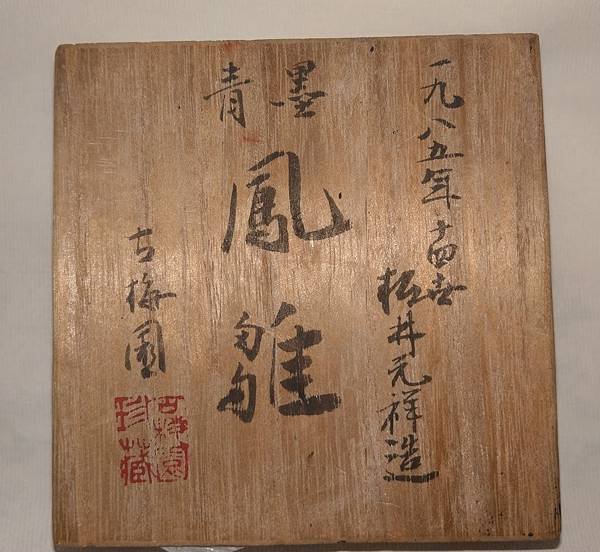 一九八五年
十四世
松井元祥造
青墨
鳳雛
古梅園
古梅園
珍藏